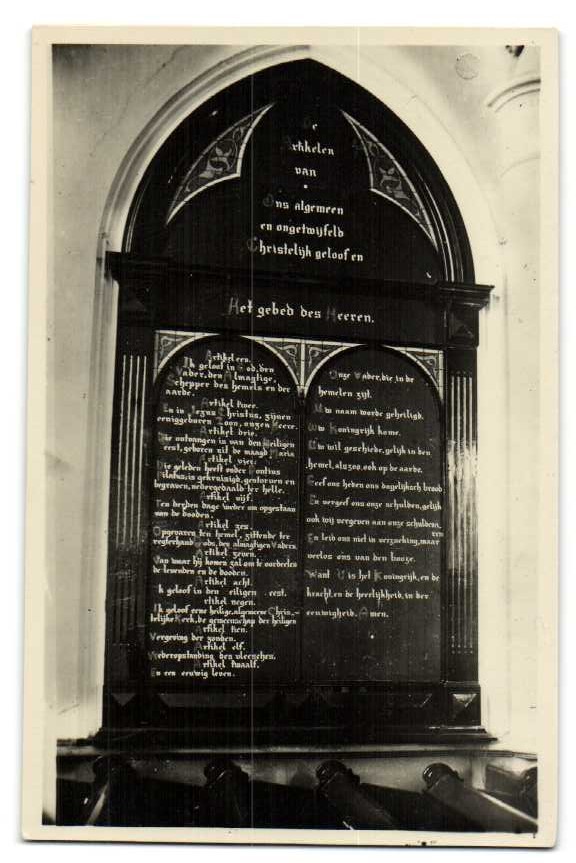 De
Artikelen
van
Ons algemeen
en ongetwijfeld
Christelijk geloof en
Het gebed des Heeren.
Artikel een.
Ik geloof in God, den
Vader, den Almagtige,
Schepper des hemels en der
aarde.
Artikel twee.
En in Jezus Christus, zijnen
eeniggeboren Zoon, onzen Heere.
Artikel drie.
Die ontvangen is van den Heiligen
Geest, geboren uit de maagd Maria
Artikel vier.
Die geleden heeft onder Pontius
Pilatus, is gekruisigd, gestorven en
begraven, nedergedaald ter helle.
Artikel vijf.
Ten derden dage weder om opgestaan
van de dooden.
Artikel zes.
Opgevaren ten hemel, zittende ter
regterhand Gods, des almagtigen Vaders.
Artikel zeven.
Van waar hij komen zal om te oordeelen
de levenden en de dooden.
Artikel acht.
Ik geloof in den Heiligen Geest.
Artikel negen.
Ik geloof eene heilige, algemeene Chris-
telijke Kerk, de gemeenschap der heiligen
Artikel tien.
Vergeving der zonden.
Artikel elf.
Wederopstanding des vleesches.
Artikel twaalf.
En een eeuwig leven.
Onze Vader, die in de
hemelen zijt.
Uw naam worde geheiligd.
Uw Koningrijk kome.
Uw wil geschiede, gelijk in den
hemel, alzoo, ook op de aarde.
Geef ons heden ons dagelijksch brood
En vergeef ons onze schulden, gelijk
ook wij vergeven aan onze schulden
aren
En leid ons niet in verzoeking, maar
verlos ons van den booze.
Want U is het Koningrijk, en de
kracht, en de heerlijkheid, in der
eeuwigheid. Amen.